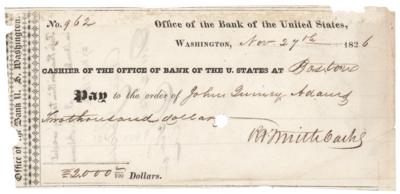 No. 962
Office of the Bank of the United States,
WASHINGTON, Nov 27th 1826
CASHIER OF THE OFFICE OF BANK OF THE U. STATES AT Boston
Pay to the order of John Quincy Adams
Two thousand dollars
Rd Smith Cashr
$2,000 /100 Dollars.
Office of Bank U. S. Washington.